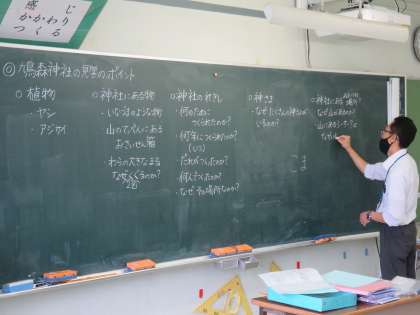 感じ
かかわり
つくる
◎鳩森神社の見学のポイント
○植物
・ヤシ
・アジサイ
○神社にある物
・いなずまのような物
・山のてっぺんにある
おさいせん箱
・わらの大きなまる
なぜくぐるのか?
2倍
○神社のれきし
・何のために
つくられたのか?
・何年につくられたのか?
(いつ)
・だれがつくったのか?
・何人でつくったのか?
・なぜその場所なのか?
○神さま
・なぜたくさんの神さまが
いるのか?
○神社にある場所?
・なぜ山があるのか?
こま